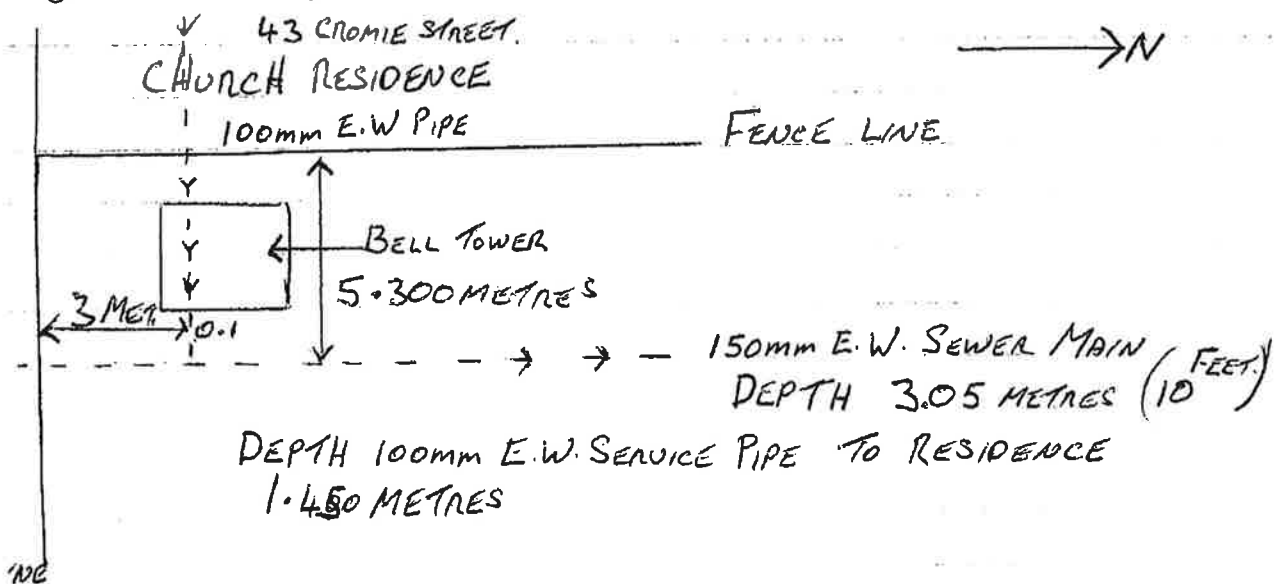 43 CROMIE STREET.
N
CHURCH RESIDENCE
100mm E.W PIPE
FENCE LINE
BELL TOWER
5.300 METRES
3 MET.
0.1
150mm E.W. SEWER MAIN
DEPTH 3.05 METRES (10 FEET.)
DEPTH 100mm E.W. SERVICE PIPE TO RESIDENCE
1.450 METRES